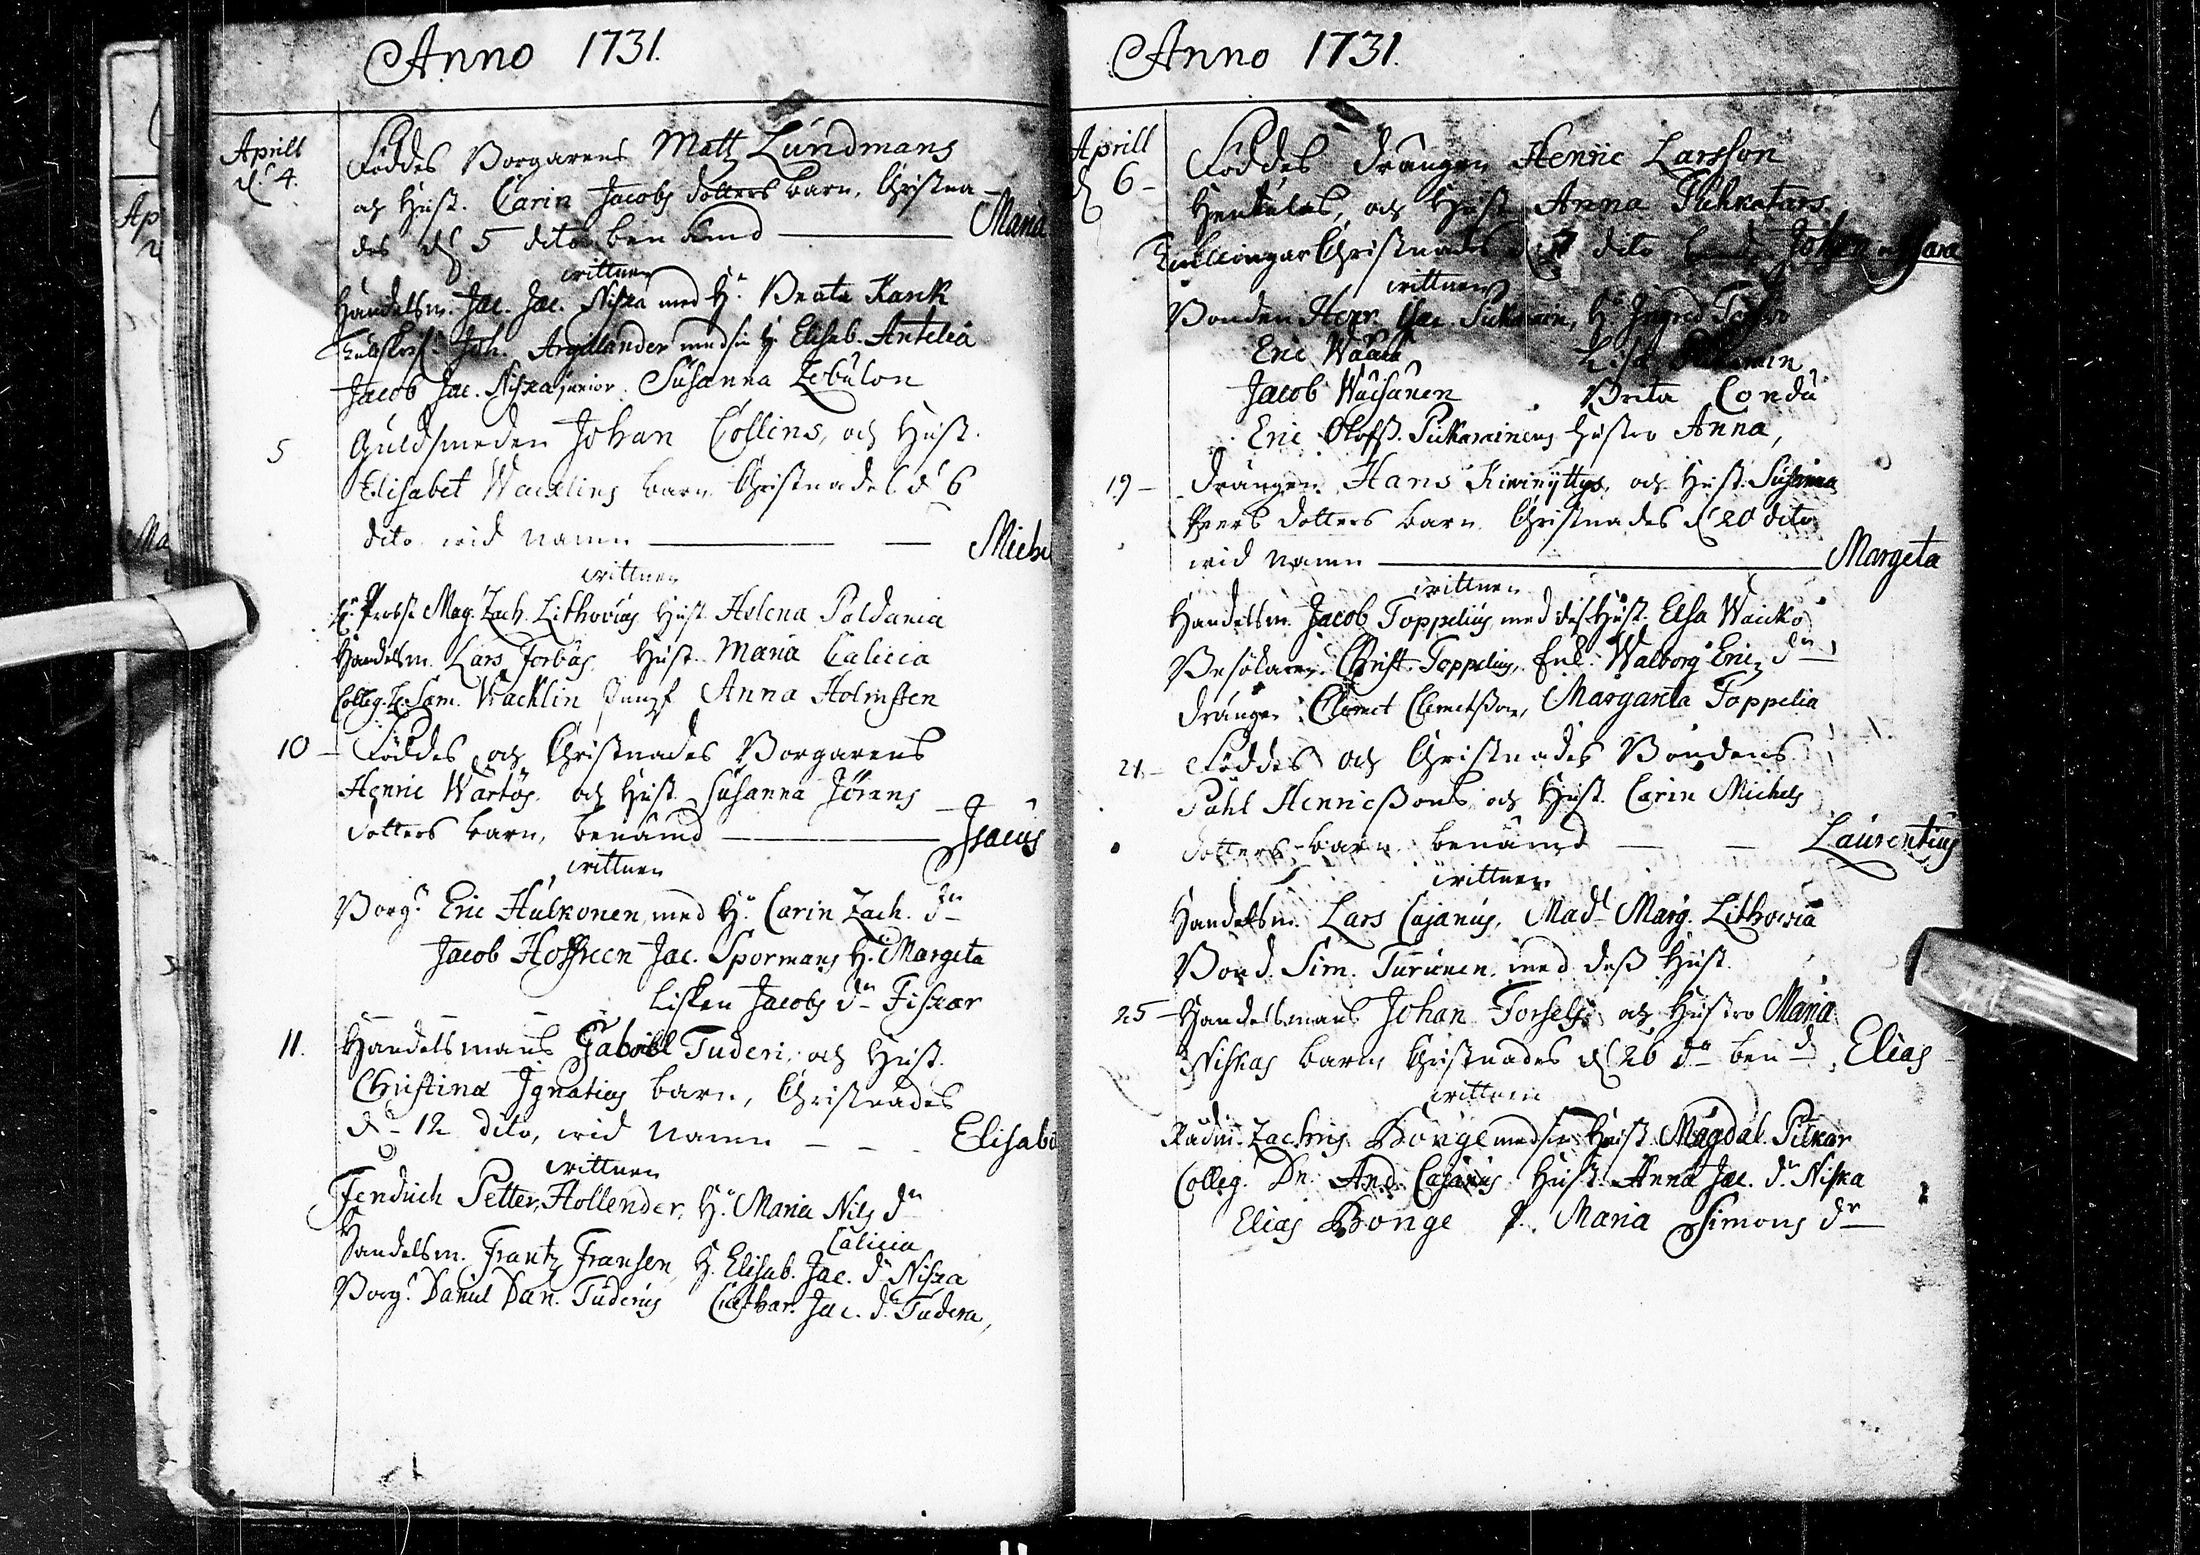 Anno 1731.
Aprill
d. 4.
Föddes Borgarens Matz Lundmans
och Hust. Carin Jacobs dotters barn, Christna-
des d. 5 dito benämd — Maria
wittnen
Handelsm. Jac. Jac. Niska med H. Beata Kank
Joh. Argillander med sin H. Elisab. Antilia
Jacob Jac. Niska junior. Susanna Zebulon
5 Guldsmeden Johan Collins, och Hust.
Elisabet Wacklins barn Christnades d. 6
dito wid namn — — Miche
wittnen
H. Probst Mag. Zach. Lithovius Hust. Helena Poldania
Handelsm. Lars Forbus Hust. Maria Calicia
Colleg. Sam. Wacklin Jungf. Anna Holmsten
10 — Föddes och Christnades Borgarens
Henric Wartös och Hust. Susanna Jörans
dotters barn, benämd — Isacus
wittnen
Borg. Eric Hulkonen, med H. Carin Zach. dr
Jacob Hoffreen Jac. Spormans H. Margeta
Lisken Jacobs dr Fiskar
11. Handelsmans Gabriel Tuderi, och Hust.
Christina Ignatius barn, Christnades
d. 12 dito, wid namn — — Elisabe
wittnen
Fendrich Petter Hollender, H. Maria Nils dr
Calicia
Handelsm. Frantz Fransen, H. Elisab. Jac. dr Niska
Borg. Daniel Dan. Tuderus Cathar. Jac. dr Tudera,
Anno 1731.
Aprill
d 6 — Föddes drängen Henric Larsson
och Hust. Anna
Twillingar Christnades d. 7 dito Johan och Sara
wittnen
Bonden Henr. H. Ingred
Eric
Jacob Waisanen Brita Condu
Eric Olofss. Pickarainens Hustro Anna,
19 — Drängen Hans Kiwinyttys, och Hust. Susanna
Peers dotters barn Christnades d. 20 dito
wid namn — Margeta
wittnen
Handelsm. Jacob Toppelius med dess Hust. Elsa Waicko
Besökaren Christ. Toppelius, Enk. Walborg Erics dr
Drängen Clemet Clemetsson, Margareta Toppelia
21 — Föddes och Christnades Bondens
Påhl Henricssons och Hust. Carin Michels
dotters barn benämd — — Laurentius
wittnen
Handelsm. Lars Cajanus, Mad. Marg. Lithovia
Bond. Sim. Turunen med dess Hust.
25 — Handelsmans Johan Forsels och Hustro Maria
Niskas barn Christnades d. 26 do ben.d Elias
wittnen
Rådm. Zachris Bonge med sin Hust. Magdal. Pickar
Colleg. Dn. And. Cajanus Hust. Anna Jac. dr Niska
Elias Bonge P. Maria Simons dr